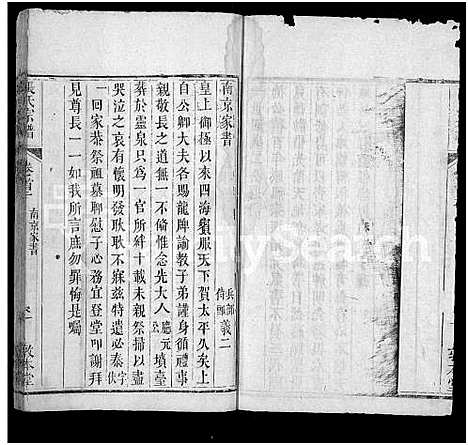 南京家書
兵部侍郎 義二
皇上御極以來四海賓服天下賀太平久矣上
自公卿大夫各賜龍牌諭教子弟謹身循禮事
親敬長之道無一不備惟念先人應元墳臺
葬於靈泉只為一官所絆十載未親祭掃以盡
哭泣之哀有懷明發耿耿不寐茲特遣必泰字伏
一回家恭祭祖墓聊慰子心務宜登堂叩謝拜
見尊長一一如我所言庶勿罪悔是囑
張氏宗譜
卷首
南京家書
敦本堂